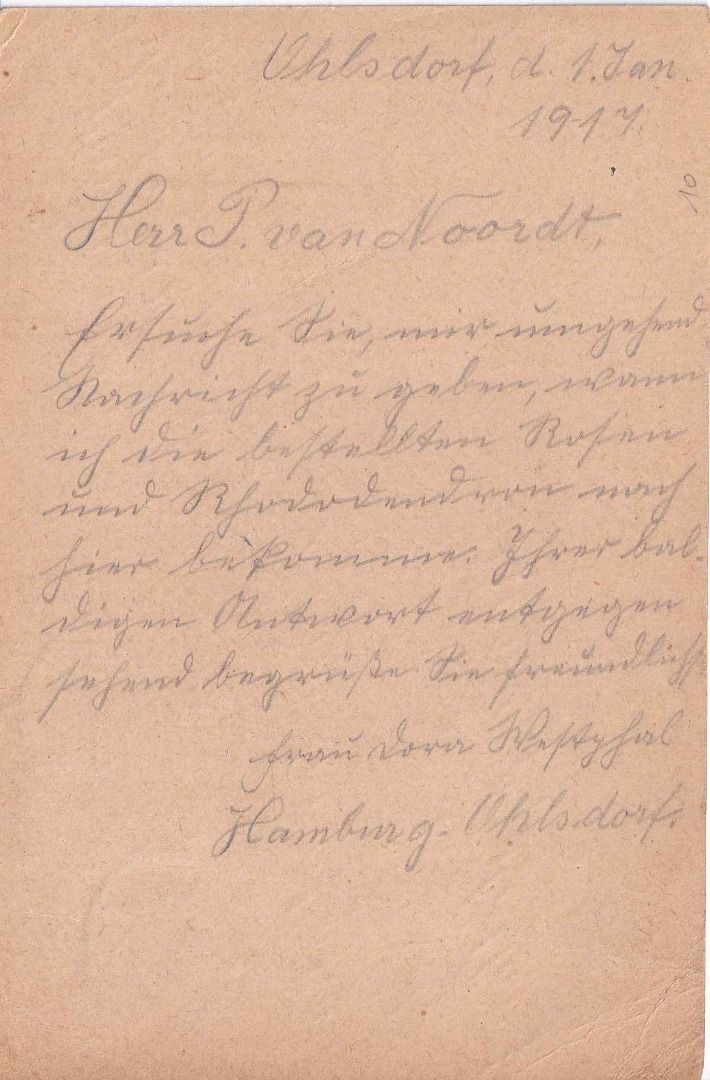 Ohlsdorf, d. 1. Jan.
1917.
10
Herr P. van Noordt,
Ersuche Sie, mir umgehend
Nachricht zu geben, wann
ich die bestellten Rosen
und Rhododendron nach
hier bekomme. Ihrer bal-
digen Antwort entgegen
sehend begrüße Sie freundlichst
Frau Dora Westphal
Hamburg-Ohlsdorf.